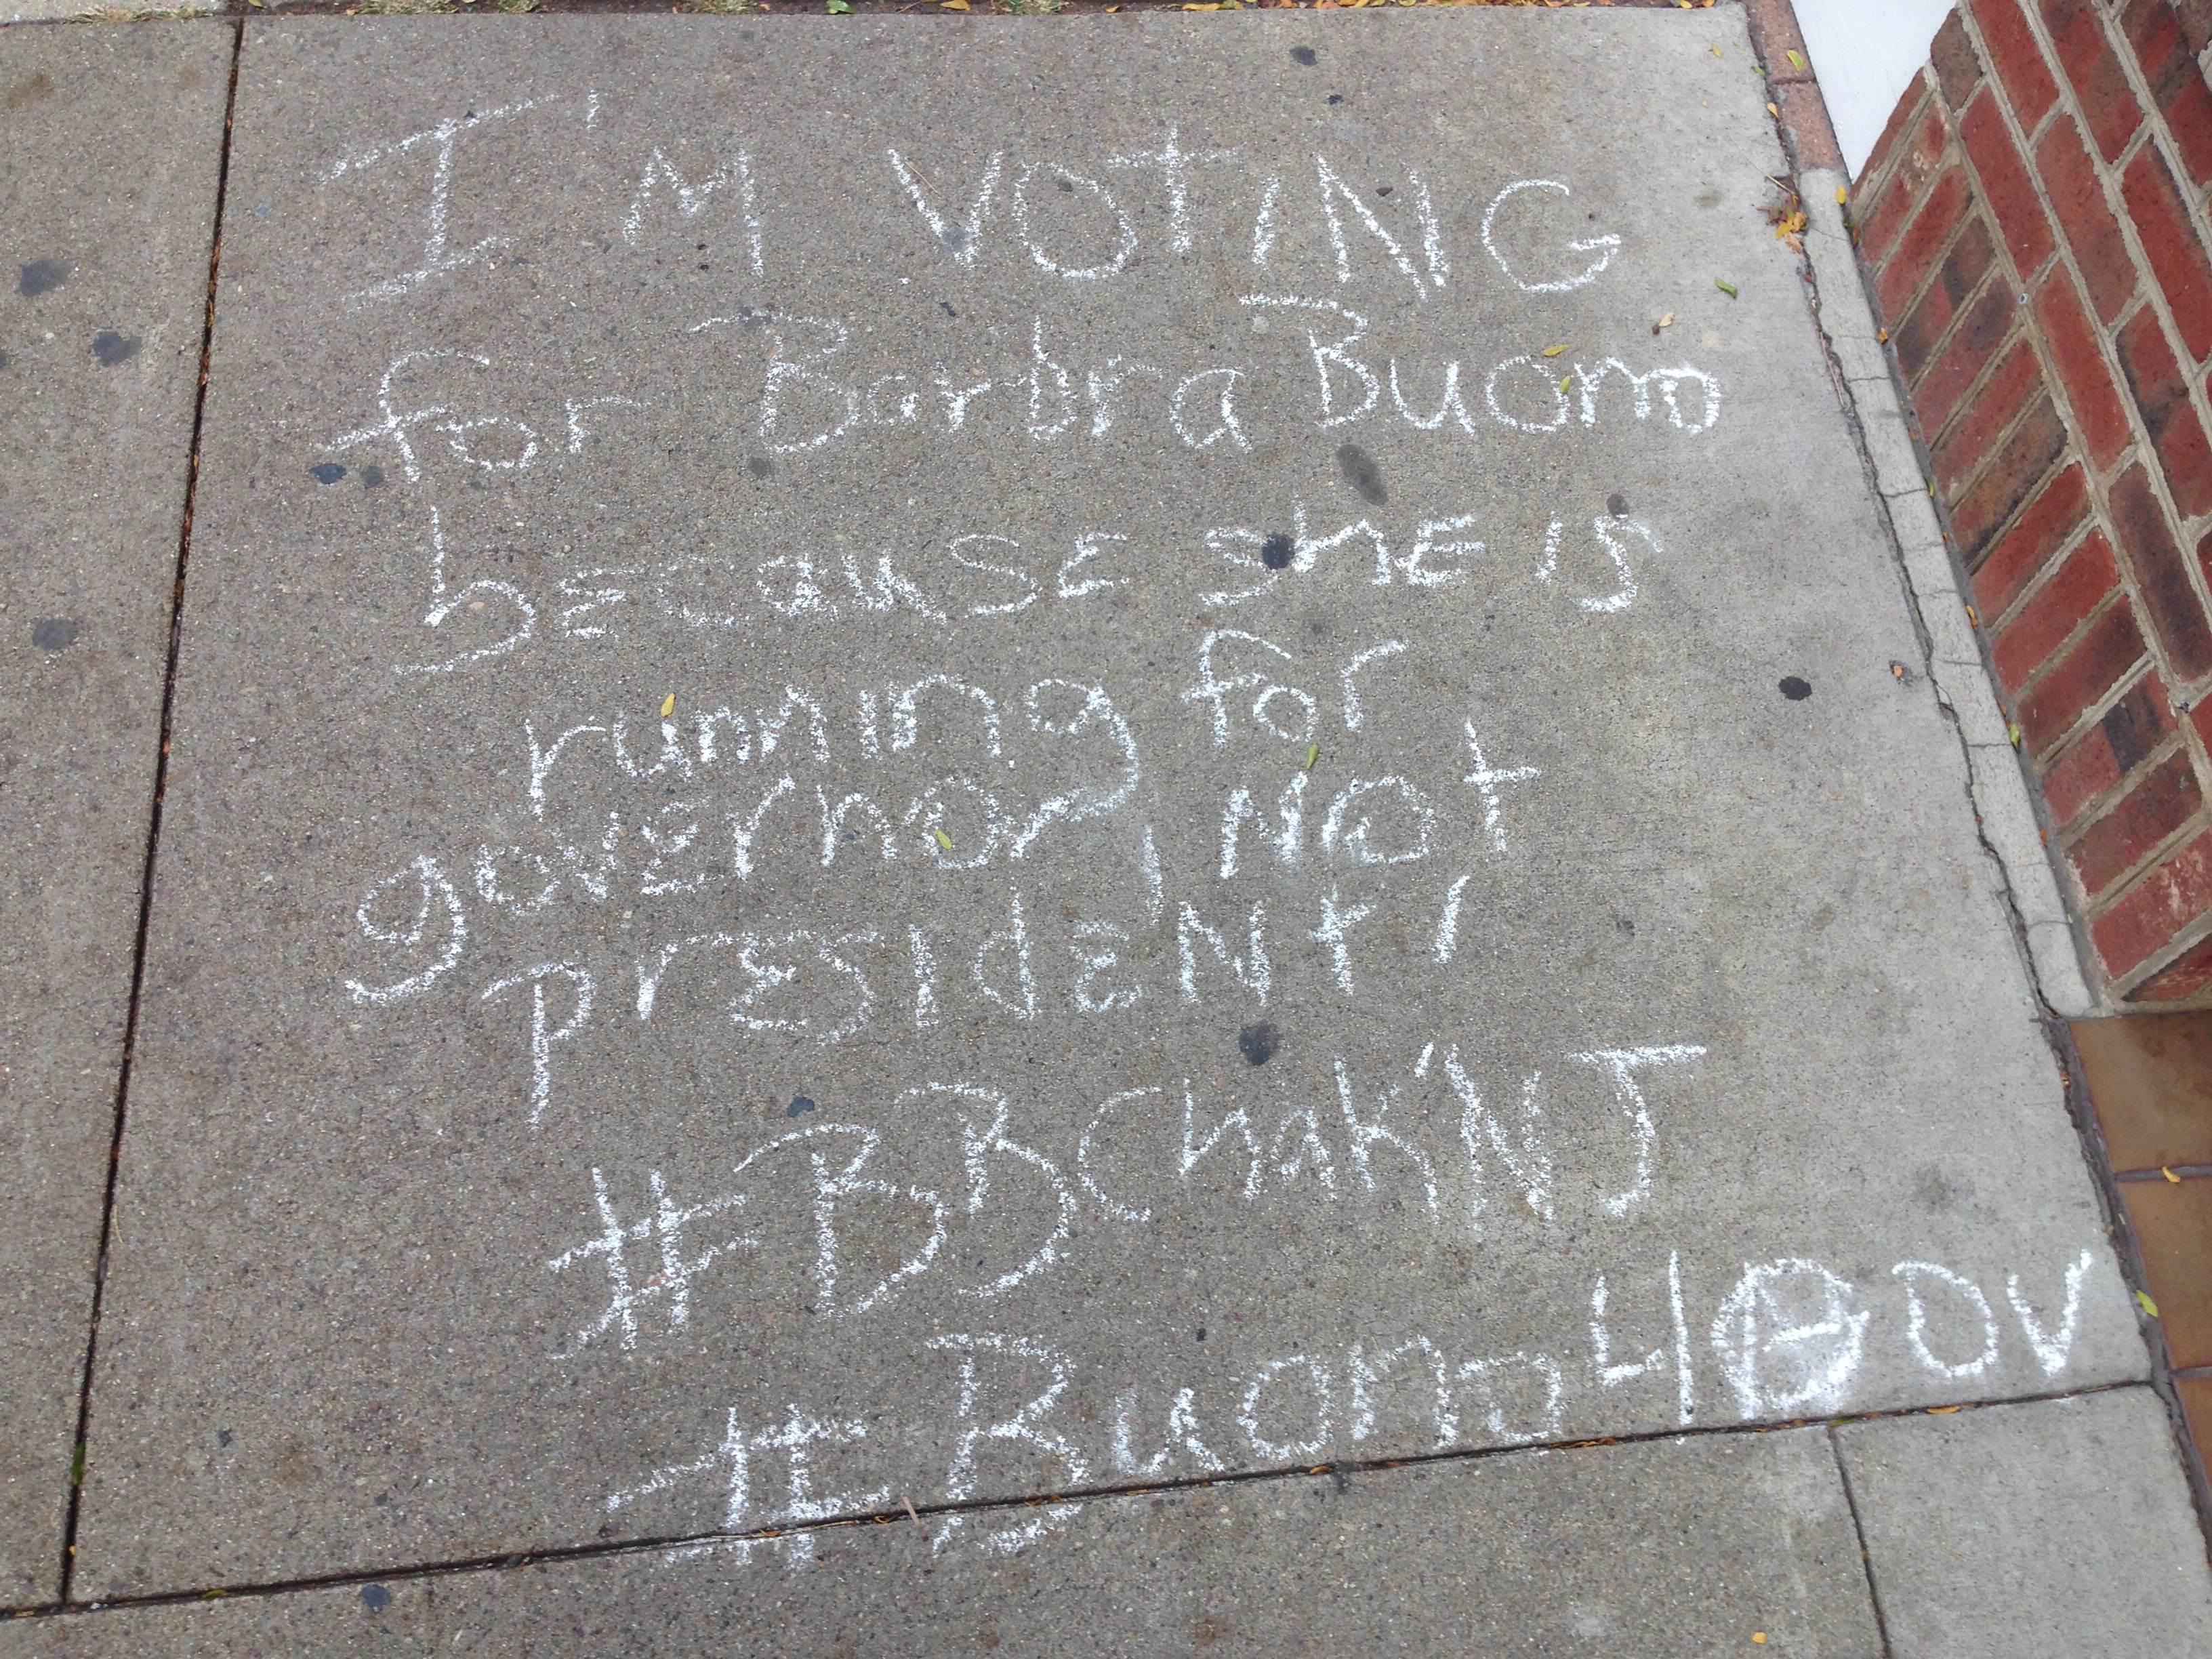 I'M VOTING
for Barbra Buono
because she is
running for
governor, not
president!
#BBChak'NJ
#Buono4Gov